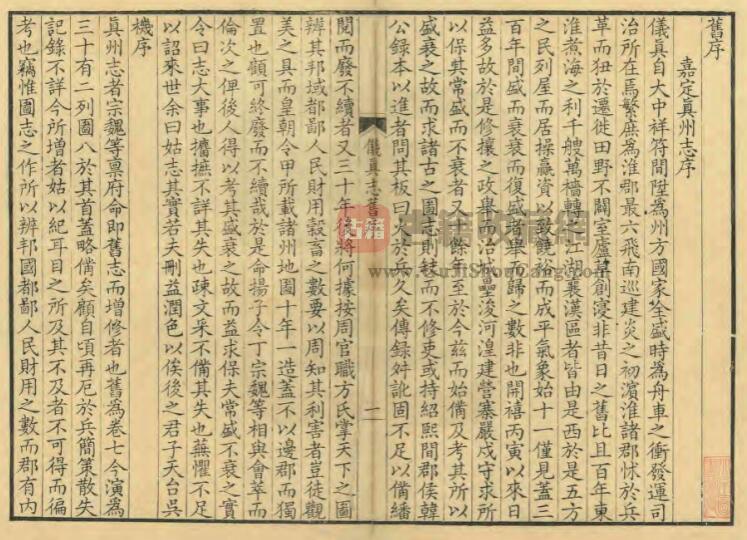 舊序
嘉定眞州志序
儀真自大中祥符間陞為州方國家全盛時為舟車之衝發運司
治所在焉繁庶為淮郡最六飛南巡建炎之初濵淮諸郡怵於兵
革而狃於遷徙田野不闢室廬草創寖非昔日之舊比且百年東
淮煮海之利千艘萬檣轉之江湖襄漢區者皆由是西於是五方
之民列屋而居操贏資以致饒裕而成平氣象始十一僅見蓋三
百年間盛而衰衰而復盛者舉歸之數非也開禧丙寅以來日
益多故於是修攘之政舉而治城壘浚河湟建營寨嚴戍守求所
以保其常盛而不衰者又十餘年至於今茲而始備及考其所以
盛衰之故而求諸古之圖志則缺而不修吏或持紹熙間郡侯韓
公録本以進者問其板曰火於兵久矣傳録舛訛固不足以備繙
儀真志舊序
二
閱而廢不續者又三十年後將何據按周官職方氏掌天下之圖
辨其邦域都鄙人民財用穀畜之數要以周知其利害者豈徒觀
美之具而皇朝令甲所載諸州地圖十年一造蓋不以邊郡而獨
置也顧可終廢而不續哉於是命揚子令丁宗魏等相與會萃而
倫次之俾後人得以考其盛衰之故而益求保夫常盛不衰之實
令曰志大事也攟摭不詳其失也疎文采不備其失也蕪懼不足
以詔來世余曰姑志其實若夫刪益潤色以俟後之君子天台吳
機序
眞州志者宗魏等稟府命即舊志而增修者也舊為卷七今演為
三十有二列圖八於其首蓋略備矣顧自頃再厄於兵簡策散失
記錄不詳今所增者姑以紀耳目之所及其不及者不可得而徧
考也竊惟圖志之作所以辨邦國都鄙人民財用之數而郡有内